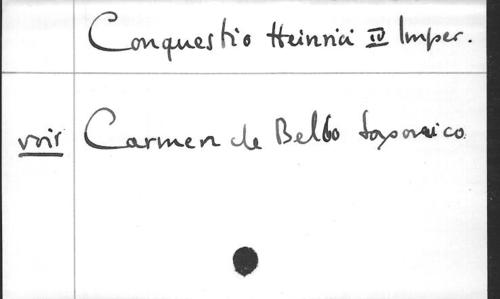 Conquestio Heinrici IV Imper.
voir Carmen de Bello Saxonico